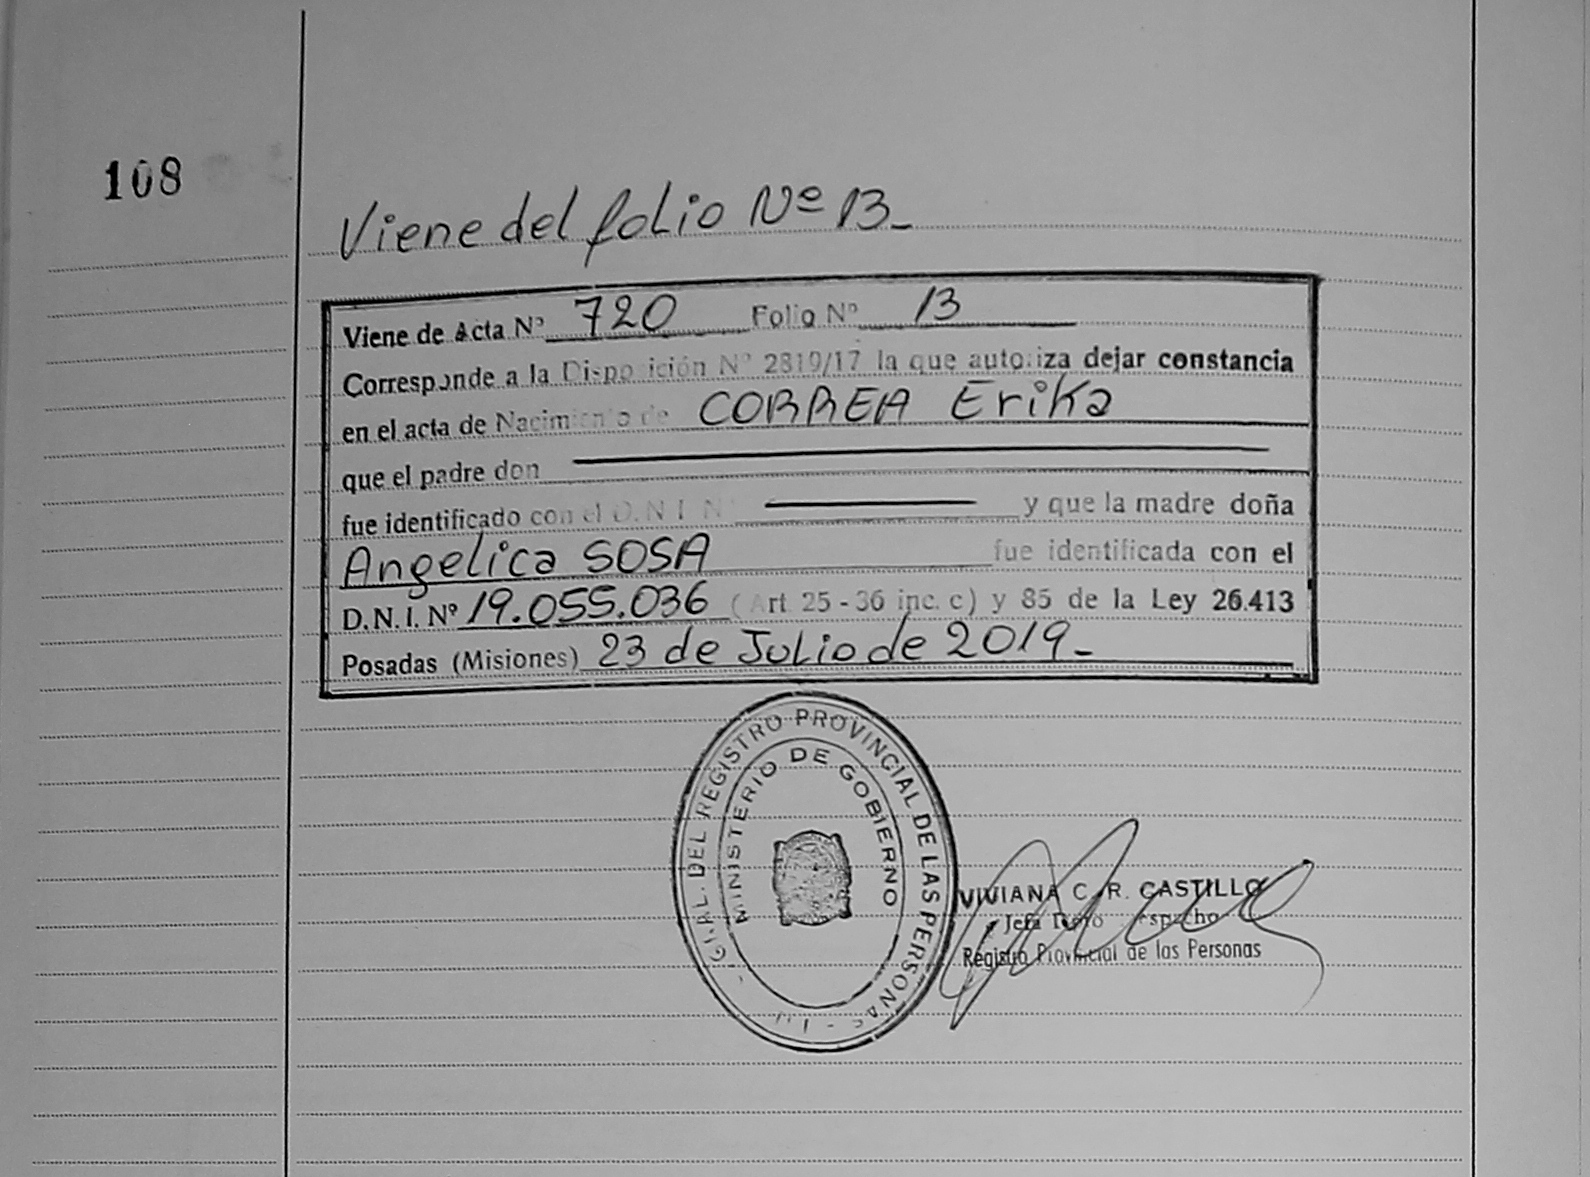 108
Viene del folio Nº 13_
Viene de Acta Nº 720 Folio Nº 13
Corresponde a la Disposición Nº 2819/17 la que autoriza dejar constancia
en el acta de Nacimiento de CORREA Erika
que el padre don
fue identificado con el D.N.I. Nº y que la madre doña
Angelica SOSA fue identificada con el
D.N.I. Nº 19.055.036 (Art. 25 - 36 inc. c) y 85 de la Ley 26.413
Posadas (Misiones) 23 de Julio de 2019_
GRAL. DEL REGISTRO PROVINCIAL DE LAS PERSONAS
MINISTERIO DE GOBIERNO
VIVIANA C. R. CASTILLO
Jefa Dpto Despacho
Registro Provincial de las Personas